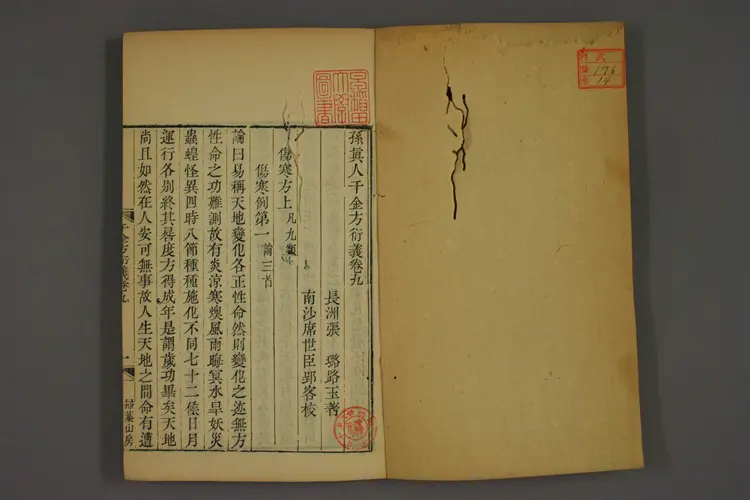 孫眞人千金方衍義卷九
長洲張 璐路玉著
南沙席世臣郢客校
傷寒方上 凡九類
傷寒例第一 論三首
論曰易稱天地變化各正性命然則變化之迹無方
性命之功難測故有炎涼寒燠風雨晦冥水旱妖災
蟲蝗怪異四時八節種種施化不同七十二候日月
運行各別終其晷度方得成年是謂歲功畢矣天地
尚且如然在人安可無事故人生天地之間命有遭
千金方衍義卷九
一
掃葉山房
早稻田大學圖書
176
14